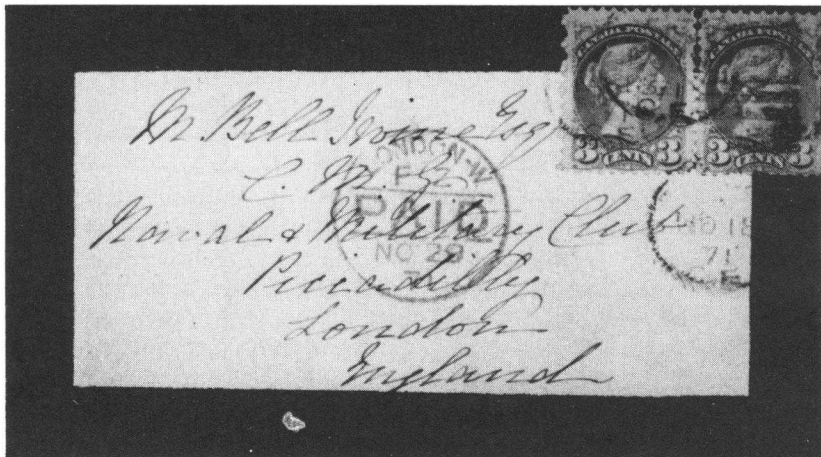 CANADA POSTAGE CANADA POSTAGE
3 CENTS 3 3 CENTS 3
M. Bell Irvine Esq
C. M. G.
Naval & Military Club
Piccadilly
London
England
LONDON-W
PAID
NO 29
NO 18
71